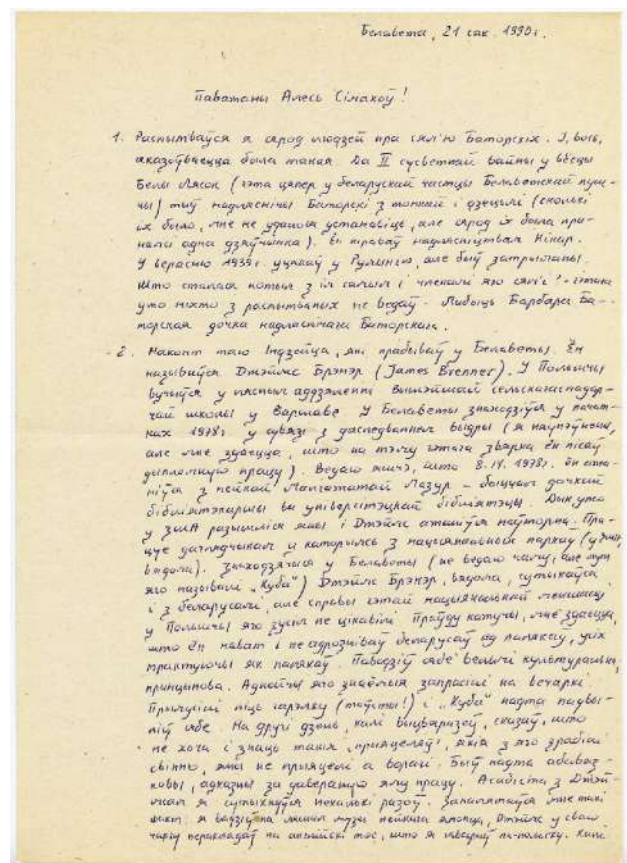 Белавежа, 21 сак. 1990 г.
Паважаны Алесь Сімакоў!
1. Распытваўся я сярод людзей пра сям'ю Баторскіх. І, вось,
аказваецца была такая. Да II сусветнай вайны у вёсцы
Белы Лясок (гэта цяпер у беларускай частцы Белавежскай пушчы)
жыў надляснічы Баторскі з жонкай і дзецьмі (сколькі
іх было, мне не удалося устанавіць, але сярод іх была прынамсі
адна дзяўчынка). Ён кіраваў надлясніцтвам
У верасні 1939 г. уцякаў у Румынію, але быў затрыманы.
Што сталася потым з ім самым і членамі яго сям'і - гэтага
ужо ніхто з распытваных не ведаў. Мабыць Барбара Баторская
дочка надляснічага Баторскага.
2. Наконт таго Індзейца, які прабываў у Белавежы. Ён
называўся Джэймс Брэнэр (James Brenner). У Польшчы
вучыўся у лясным аддзяленні Вышэйшай сельскагаспадарчай
школы у Варшаве. У Белавежы знаходзіўся у пачатках
1978 г. у сувязі з даследваннем выдры (я няупэўнены,
але мне здаецца, што на тэму гэтага звярка ён пісаў
дыпломную працу). Ведаю яшчэ, што 8.IV.1978 г. ён ажаніўся
з нейкай Малгажатай Мазур - быццам дачкой
бібліятэкаркі ва універсітэцкай бібліятэцы. Дык ужо
у ЗША разышліся яны і Джэймс ажаніўся паўторна. Працуе
даглядчыкам у каторымсь з нацыянальных паркаў (у ЗША,
вядома). Знаходзячыся у Белавежы (не ведаю чаму, але тут
яго называлі „Куба") Джэймс Брэнэр, вядома, сутыкаўся
і з беларусамі, але справы гэтай нацыянальнай меншасці
у Польшчы яго зусім не цікавілі. Праўду кажучы, мне здаецца,
што ён нават і не адрозніваў беларусаў ад палякаў, усіх
трактуючы як палякаў. Паводзіў сябе вельмі культуральна,
прынцыпова. Аднойчы яго знаёмыя запрасілі на вечарку.
Прымусілі піць гарэлку (тосты!) і „Куба" надта падвыпіў
сабе. На другі дзень, калі выцверазеў, сказаў, што
не хоча і знаць такіх „прыяцеляў", якія з яго зрабілі
свінню, яны не прыяцелі а ворагі. Быў надта абавязковы,
адказны за давераную яму працу. Асабіста з Джэймсам
я сутыкнуўся некалькі разоў. Запамятаўся мне такі
факт: я вадзіў па нашым музеі нейкага хлопца, Джэймс у сваю
чаргу перакладаў на англійскі тое, што я гаварыў па-польску. Калі